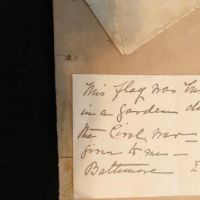 This flag was bu
in a garden d
the Civil War —
given to me —
Baltimore